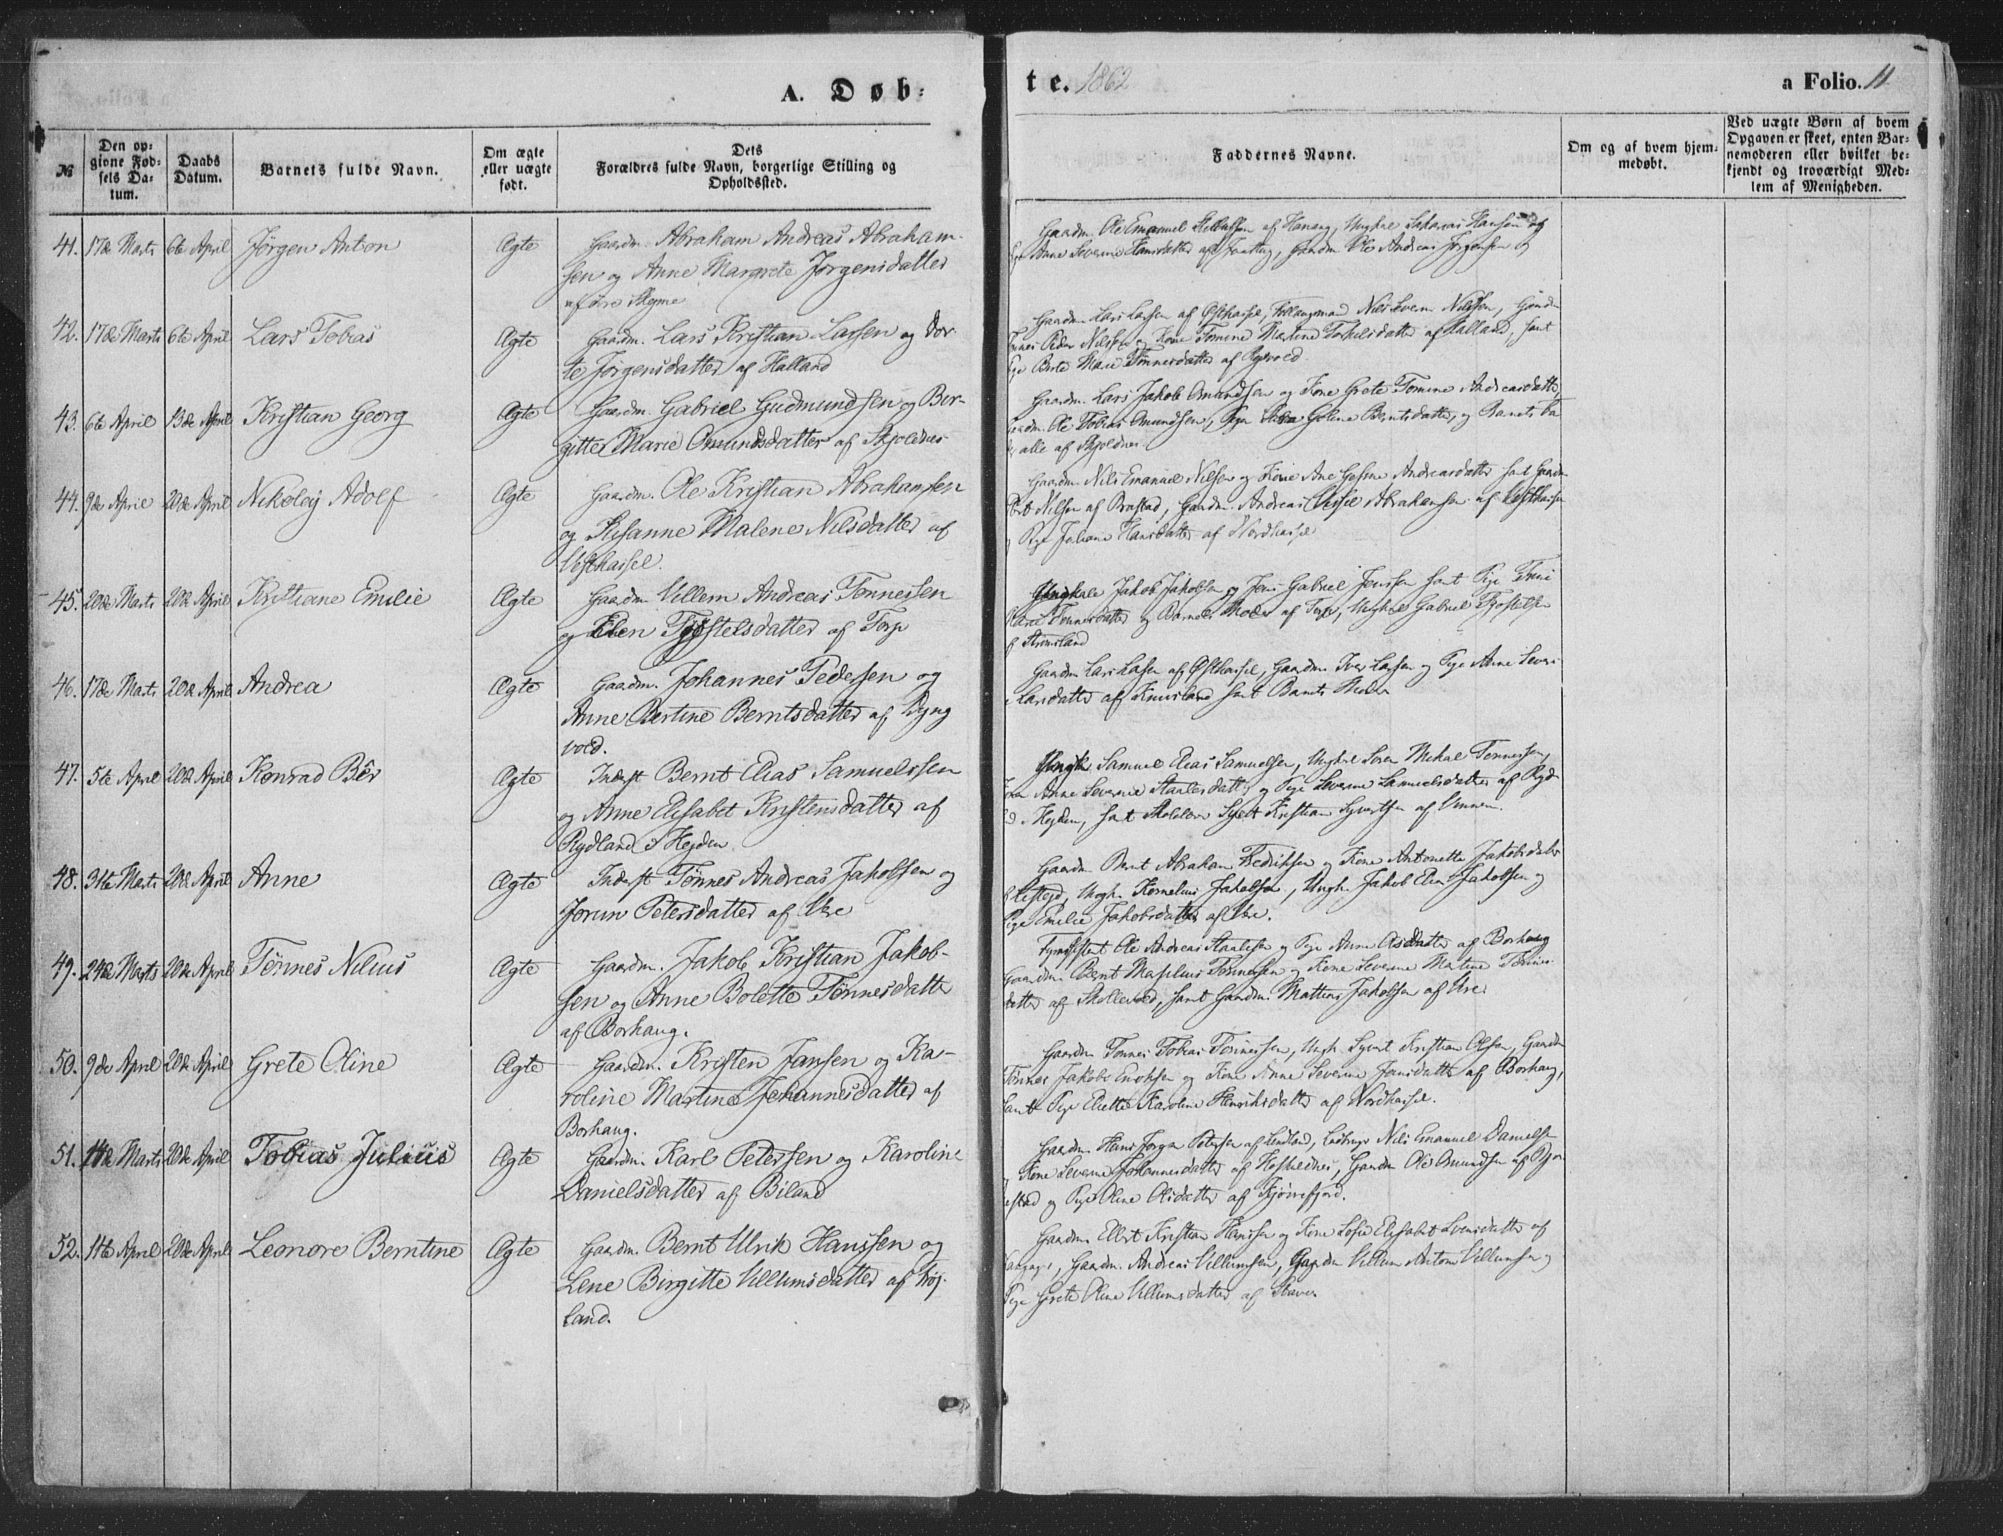 A. Døb-
te. 1862
a Folio. 11
№
Den opgivne Fødsels Datum.
Daabs Datum.
Barnets fulde Navn.
Om ægte eller uægte født.
Dets Forældres fulde Navn, borgerlige Stilling og Opholdssted.
Faddernes Navne.
Om og af hvem hjemmedøbt.
Ved uægte Børn af hvem Opgaven er skeet, enten Barnemoderen eller hvilket bekjendt og troværdigt Medlem af Menigheden.
41. 17de Marts 6te April Jørgen Anton Ægte Gaardm. Abraham Andreas Abraham-
sen og Anne Margrete Jørgensdatter
af Øre
Gaardm. Ole Emanuel af Hananger, Ungkarl Sakarias Hansen og
Anne Severine Hansdatter af Gaardm. Ole Andreas Jørgensen
42. 17de Marts 6te April Lars Tobias Ægte Gaardm. Lars Kristian Larsen og Dor-
te Jørgensdatter af Halland
Gaardm. Lars Larsen af Østhassel, Nils Severin Nilssen, Gaardm.
Peder Nilsen og Kone Tomine Martine Torkelsdatter af Halland, samt
Pige Berte Marie Tønnesdatter af
43. 6te April 13de April Kristian Georg Ægte Gaardm. Gabriel Gudmundsen og Bir-
gitte Marie Omundsdatter af Skjoldnes
Gaardm. Lars Jakob Omundsen og Kone Grete Tomine Andreasdatter
Ole Tobias Omundsen, Pige Golene Berntsdatter, og Barnets Fa-
alle af Skjoldnes
44. 9de April 20de April Nikolaj Adolf Ægte Gaardm. Ole Kristian Abrahamsen
og Susanne Malene Nilsdatter af
Vesthassel.
Gaardm. Nils Emanuel Nilsen og Kone Ane Gesine Andreasdatter samt Gaardm.
Nilsen af Brastad, Gaardm. Andreas Abrahamsen af Vesthassel
Pige Juliane Hansdatter af Nordhassel
45. 20de Marts 20de April Kristiane Emilie Ægte Gaardm. Villem Andreas Tønnessen
og Elen Tjøstelsdatter af Torp
Ungkarle Jakob Jakobsen og Jens Gabriel Jenssen samt Pige
Tønnesdatter og Barnets Moder af Torp, Ungkarl Gabriel Tjøstelsen
46. 17de Marts 20de April Andrea Ægte Gaardm. Johannes Pedersen og
Anne Bertine Berntsdatter af Ryng
vold.
Gaardm. Lars Larsen af Østhassel, Gaardm. Iver Larsen og Pige Anne Severi-
Larsdatter af samt Barnets Moder
47. 5te April 20de April Konrad Bêr Ægte Inderst Bernt Elias Samuelssen
og Anne Elisabet Kristensdatter af
Rydland i Hejden
Samuel Elias Samuelsen, Ungkarl Søren Mikal Tønnessen,
Anne Severine og Pige Severine Samuelsdatter af Ryd-
Hejden, samt Skolelærer Syvert Kristian Syvertsen af Vinnem.
48. 31te Marts 20de April Anne Ægte Inderst Tønnes Andreas Jakobsen og
Jorun Petersdatter af Vre
Gaardm. Bernt Abraham Fredriksen og Kone Antonette Jakobsdatter
Ungk. Kornelius Jakobsen, Ungk. Jakob Elias Jakobsen og
Pige Emilie Jakobsdatter af Vre.
49. 24de Marts 20de April Tønnes Nilius Ægte Gaardm. Jakob Kristian Jakob-
sen og Anne Bolette Tønnesdatter
af Borhaug.
Ole Andreas Staalesen og Pige Anne Olsdatter af Borhaug
Gaardm. Bernt Tønnessen og Kone Severine Martine Tønnes-
datter af Skollevold, samt Gaardm. Mattias Jakobsen af Vre.
50. 9de April 20de April Grete Oline Ægte Gaardm. Kristen Jansen og Ka-
roline Martine Johannesdatter af
Borhaug.
Gaardm. Tønnes Tobias Tønnessen, Ungk. Syvert Kristian Olsen, Gaardm.
Tønnes Jakob Enoksen og Kone Anne Severine Jansdatter af Borhaug,
samt Pige Eliette Karoline Henriksdatter af Nordhassel.
51. 14de Marts 20de April Tobias Julius Ægte Gaardm. Karl Petersen og Karoline
Danielsdatter af Biland
Gaardm. Hans Jørgen Petersen af Lindland, Nils Emanuel Danielsen
Kone Severine Johannesdatter af Gaardm. Ole Omundsen af
og Pige Oline Olsdatter af Tjørnefjord.
52. 11te April 20de April Leonore Berntine Ægte Gaardm. Bernt Ulrik Hanssen og
Lene Birgitte Villumsdatter af Høj-
land.
Gaardm. Elert Kristian Hanssen og Kone Sofie Elisabet Svensdatter af
Gaardm. Andreas Villumsen, Gaardm. Villum Anton Villumsen og
Pige Grete Oline Villumsdatter af